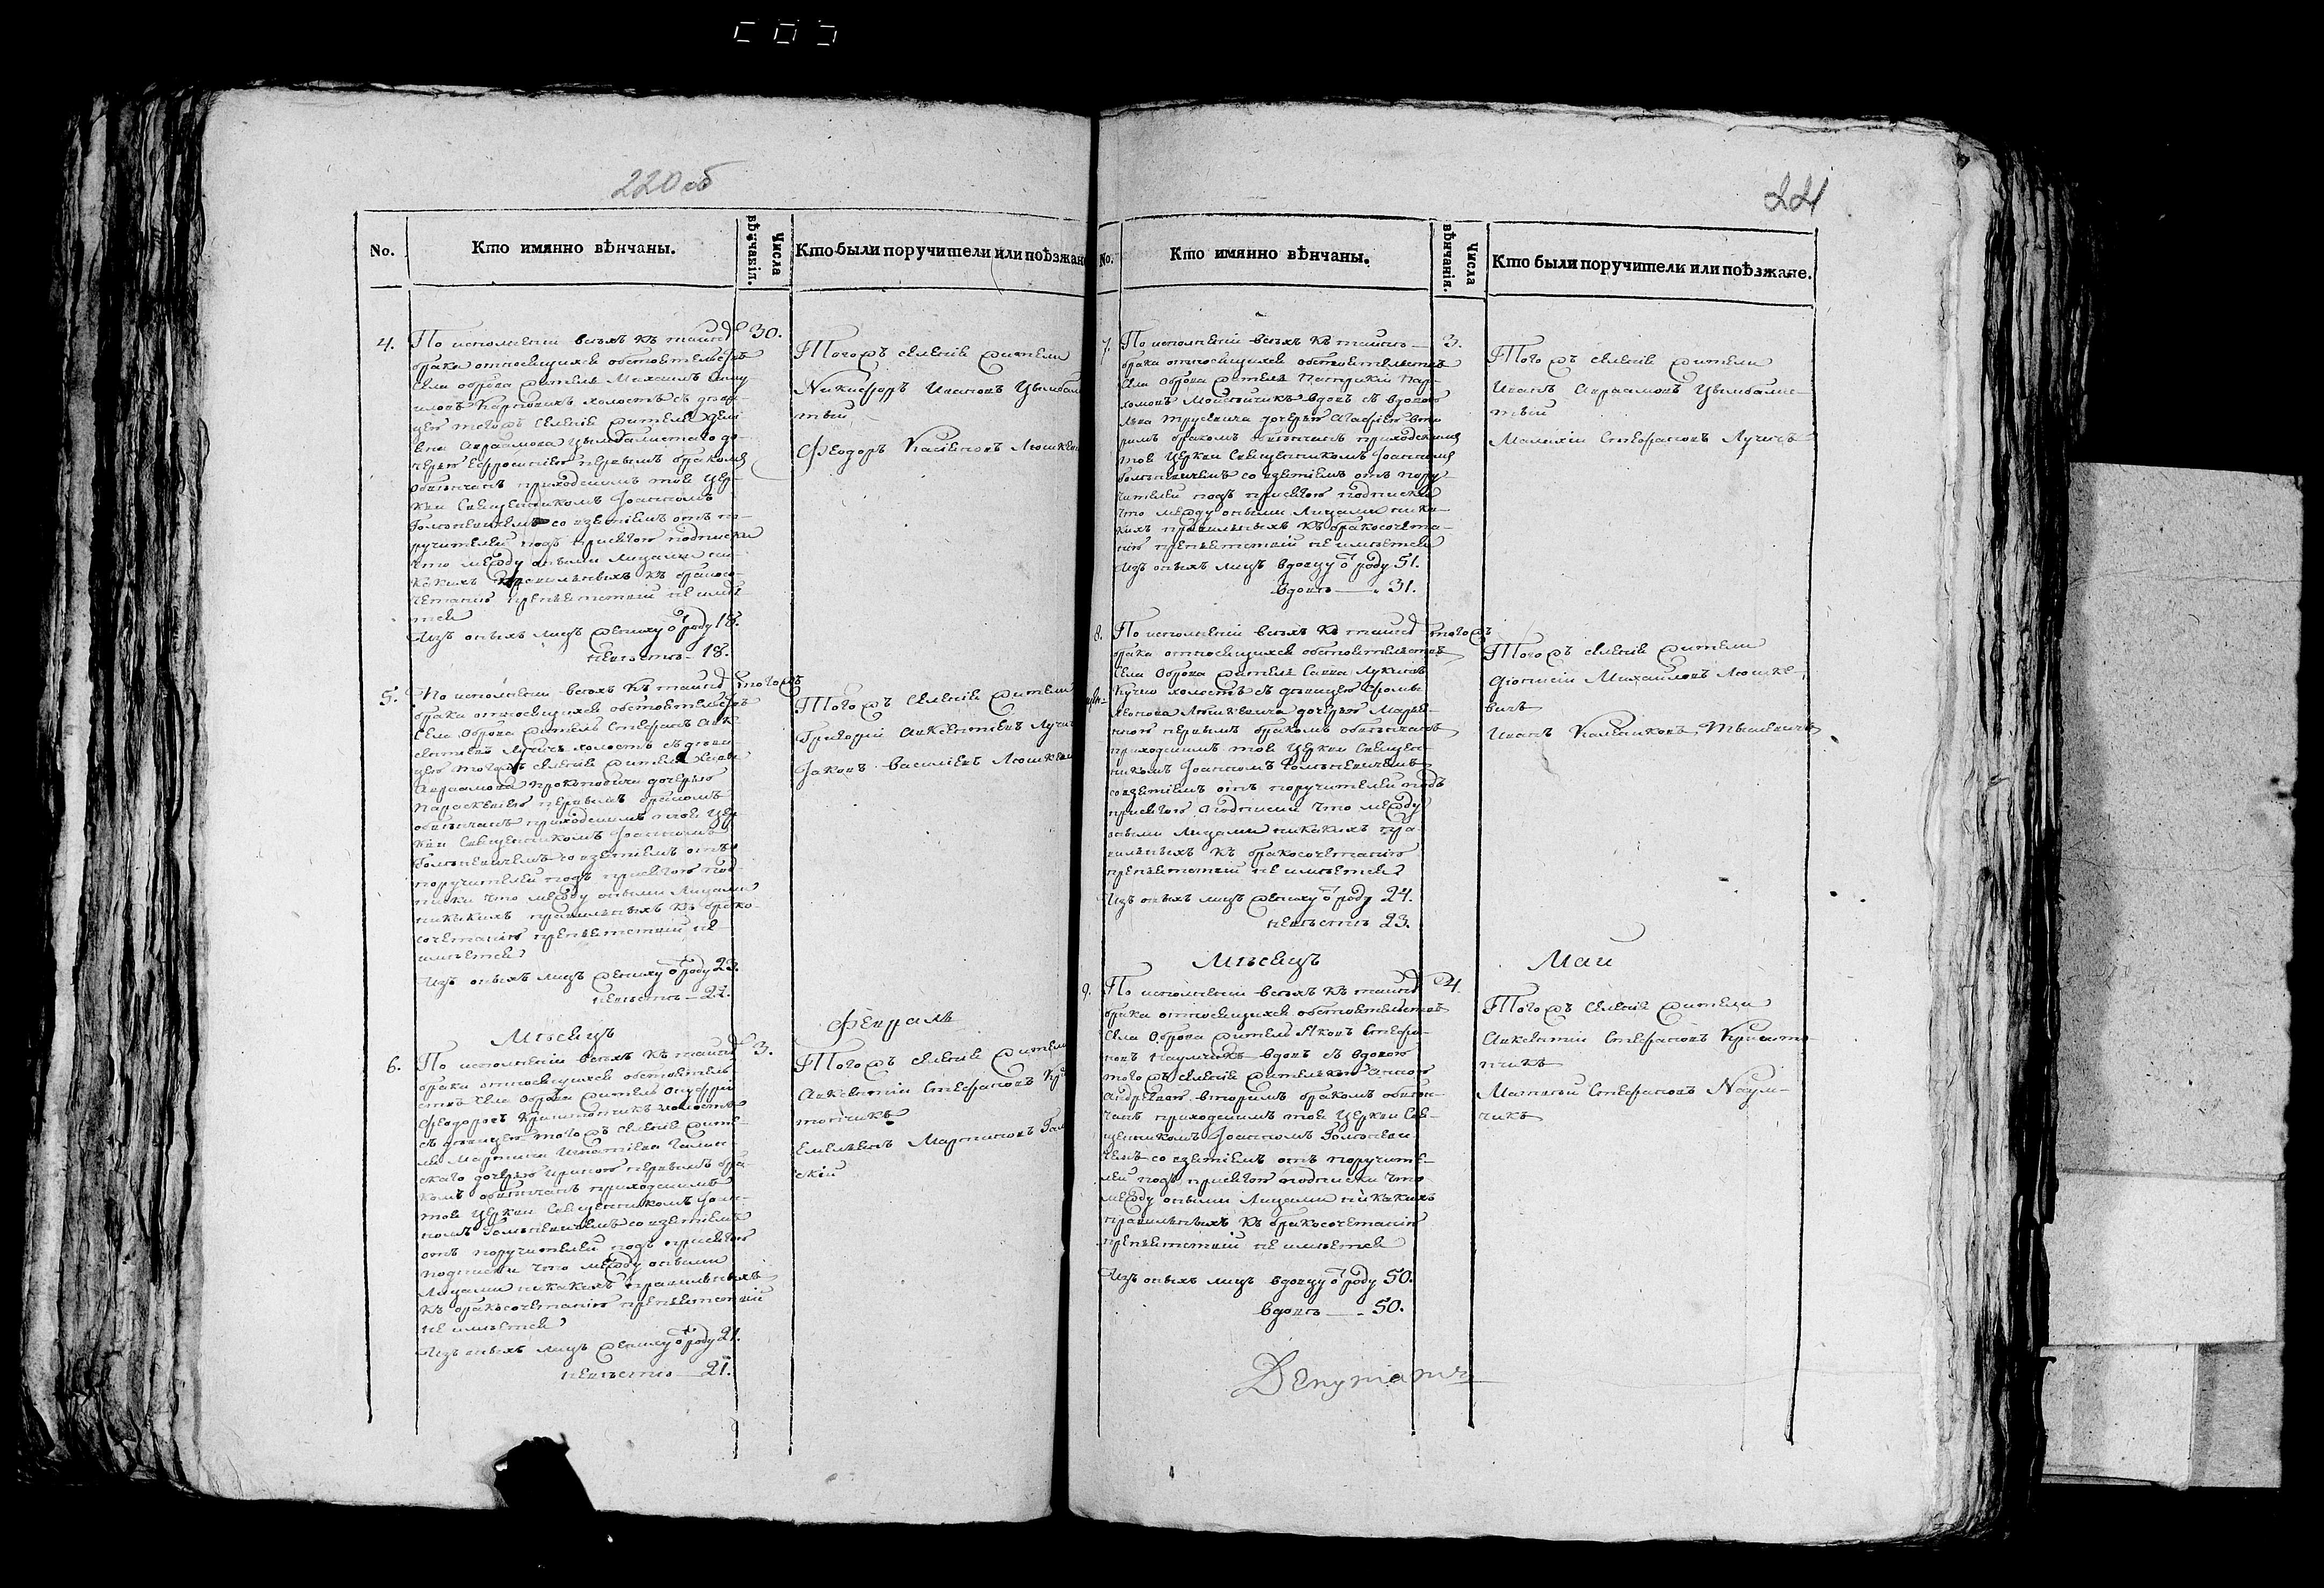 220 об
No.
Кто имянно вѣнчаны.
Числа вѣнчанія.
Кто были поручители или поѣзжан
4.
По исполненіи всѣхъ къ таинст
30.
брака относящихся обстоятельствъ
села Оброва житель Михаилъ
холостъ съ дѣви-
цею тогожъ селенія жителя
Авраамова Цымбалистаго до-
черью Ефросиніею первымъ бракомъ
обвѣнчанъ приходскимъ той цер-
кви Священникомъ Іоанномъ
со взятіемъ отъ по-
ручителей подъ присягою подписки
что между оными лицами ни-
какихъ правильныхъ къ бракосо-
четанію препятствій не имѣе
тся
Изъ оныхъ лицъ жениху отъ роду 18.
невѣстѣ — 18.
Тогожъ селенія жители
Никифоръ Ивановъ Цымбал
тый
Феодоръ
5.
По исполненіи всѣхъ къ таинст
тогожъ
брака относящихся обстоятельствъ
села Оброва житель Стефанъ Авк-
сентіевъ Лучичъ холостъ съ дѣви-
цею тогожъ селенія жителя
Авраамова Прокоповича дочерью
Параскевіею первымъ бракомъ
обвѣнчанъ приходскимъ той цер-
кви Священникомъ Іоанномъ
со взятіемъ отъ
поручителей подъ присягою под-
писки что между оными лицами
никакихъ правильныхъ къ брако-
сочетанію препятствій не
имѣется
Изъ оныхъ лицъ жениху отъ роду 23.
невѣстѣ — 22.
Тогожъ селенія жители
Григорій Авксентіевъ Лучи
Іаковъ Василіевъ Люшкеви
Мѣсяцъ
Февраль
6.
По исполненіи всѣхъ къ таинст
3.
брака относящихся обстоятель-
ствъ села Оброва житель Онуфрій
Феодоровъ холостъ
съ дѣвицею тогожъ селенія жите-
ля Мартина Игнатіева
скаго дочерью Ириною первымъ бра-
комъ обвѣнчанъ приходскимъ
той церкви Священникомъ Іоан-
номъ со взятіемъ
отъ поручителей подъ присягою
подписки что между оными
лицами никакихъ правильныхъ
къ бракосочетанію препятствій
не имѣется
Изъ оныхъ лицъ жениху отъ роду 21.
невѣстѣ — 21.
Тогожъ селенія жители
Авксентій Стефановъ
Емеліянъ Мартиновъ Гал
скій
221
No.
Кто имянно вѣнчаны.
Числа вѣнчанія.
Кто были поручители или поѣзжане.
7.
По исполненіи всѣхъ къ таинст
3.
брака относящихся обстоятельствъ
села Оброва житель Патрикій Пар-
хомовъ вдовъ съ вдовою
дочерью Агафіею вто-
рымъ бракомъ обвѣнчанъ приходскимъ
той церкви Священникомъ Іоанномъ
со взятіемъ отъ пору-
чителей подъ присягою подписки
что между оными лицами ника-
кихъ правильныхъ къ бракосочета-
нію препятствій не имѣется
Изъ оныхъ лицъ вдовцу отъ роду 51.
вдовѣ — 31.
Тогожъ селенія жители
Иванъ Авраамовъ Цымбалис-
тый
Стефановъ Лучичъ
8.
По исполненіи всѣхъ къ таинст
тогожъ
брака относящихся обстоятельствъ
села Оброва житель Савва Лукинъ
холостъ съ дѣвицею
Люшкевича дочерью Марья-
ною первымъ бракомъ обвѣнчанъ
приходскимъ той церкви Священ-
никомъ Іоанномъ
со взятіемъ отъ поручителей подъ
присягою подписки что между
оными лицами никакихъ пра-
вильныхъ къ бракосочетанію
препятствій не имѣется
Изъ оныхъ лицъ жениху отъ роду 24.
невѣстѣ 23.
Тогожъ селенія жители
Діонисій Михайловъ Люшке-
вичъ
Иванъ
Мѣсяцъ
Май
9.
По исполненіи всѣхъ къ таинст
24.
брака относящихся обстоятельствъ
села Оброва житель Яковъ Стефа-
новъ Наумчикъ вдовъ съ вдовою
тогожъ селенія Анною
Андреевою вторымъ бракомъ обвѣн-
чанъ приходскимъ той церкви Свя-
щенникомъ Іоанномъ
со взятіемъ отъ поручите-
лей подъ присягою подписки что
между оными лицами никакихъ
правильныхъ къ бракосочетанію
препятствій не имѣется
Изъ оныхъ лицъ вдовцу отъ роду 50.
вдовѣ — 50.
Тогожъ селенія жители
Авксентій Стефановъ
Матвей Стефановъ Наум-
чикъ
Депутатъ